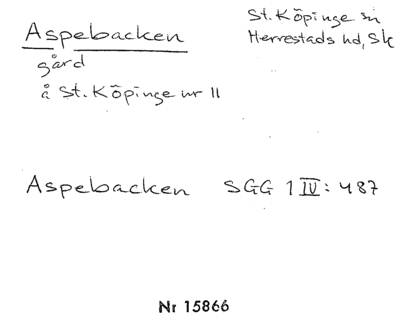 Aspebacken
gård
å St. Köpinge nr 11
St. Köpinge sn
Herrestads hd, Sk
Aspebacken SGG 1 IV: 487
Nr 15866